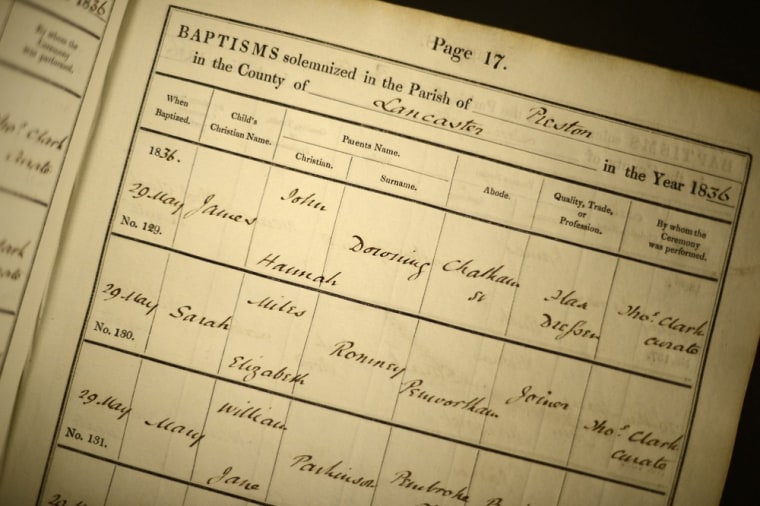 1836
Page 17.
BAPTISMS solemnized in the Parish of Preston
in the County of Lancaster in the Year 1836
By whom the
Ceremony
was performed.
When
Baptized.
Child's
Christian Name.
Parents Name.
Christian.
Surname.
Abode.
Quality, Trade,
or
Profession.
By whom the
Ceremony
was performed.
1836.
29 May
No. 129.
James
John
Hannah
Downing
Chatham
St
Flax
Dresser
Thos. Clark
curate
29 May
No. 130.
Sarah
Miles
Elizabeth
Romney
Penwortham
Joiner
Thos. Clark
curate
29 May
No. 131.
Mary
William
Jane
Parkinson
Pembroke
Clark
curate